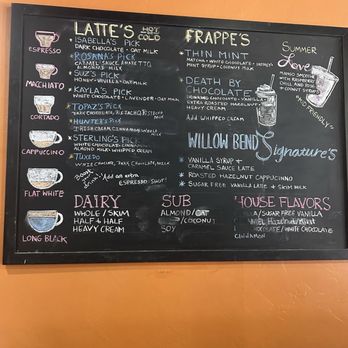 LATTE'S HOT
COLD
ISABELLA'S PICK
DARK CHOCOLATE • OAT MILK
ROSANA'S PICK
CARAMEL SAUCE
ALMOND MILK
SUZ'S PICK
HONEY • VANILLA • OAT MILK
KAYLA'S PICK
WHITE CHOCOLATE • LAVENDER • OAT MILK
TOPAZ'S PICK
DARK CHOCOLATE, PISTACHIO
HUNTER'S PICK
IRISH CREAM
STERLING'S PICK
WHITE CHOCOLATE
ALMOND MILK WHIPPED CREAM
TUXEDO
WHITE CHOCOLATE, DARK CHOCOLATE, MILK
ESPRESSO SHOT!
ESPRESSO
MACCHIATO
CORTADO
CAPPUCCINO
FLAT WHITE
LONG BLACK
FRAPPE'S
THIN MINT
MATCHA • WHITE CHOCOLATE
MINT SYRUP • COCONUT MILK
DEATH BY
CHOCOLATE
EXTRA ROASTED HAZELNUT
HEAVY CREAM
ADD WHIPPED CREAM
SUMMER
Love
MANGO SMOOTHIE
WITH RASPBERRY
CHILI AND RED
WILLOW BEND Signature's
VANILLA SYRUP &
CARAMEL SAUCE LATTE
ROASTED HAZELNUT CAPPUCCINO
SUGAR FREE VANILLA LATTE & SKIM MILK
DAIRY
WHOLE / SKIM
HALF & HALF
HEAVY CREAM
SUB
ALMOND / OAT
/COCONUT
SOY
HOUSE FLAVORS
/ SUGAR FREE VANILLA
/ WHITE CHOCOLATE
CINNAMON